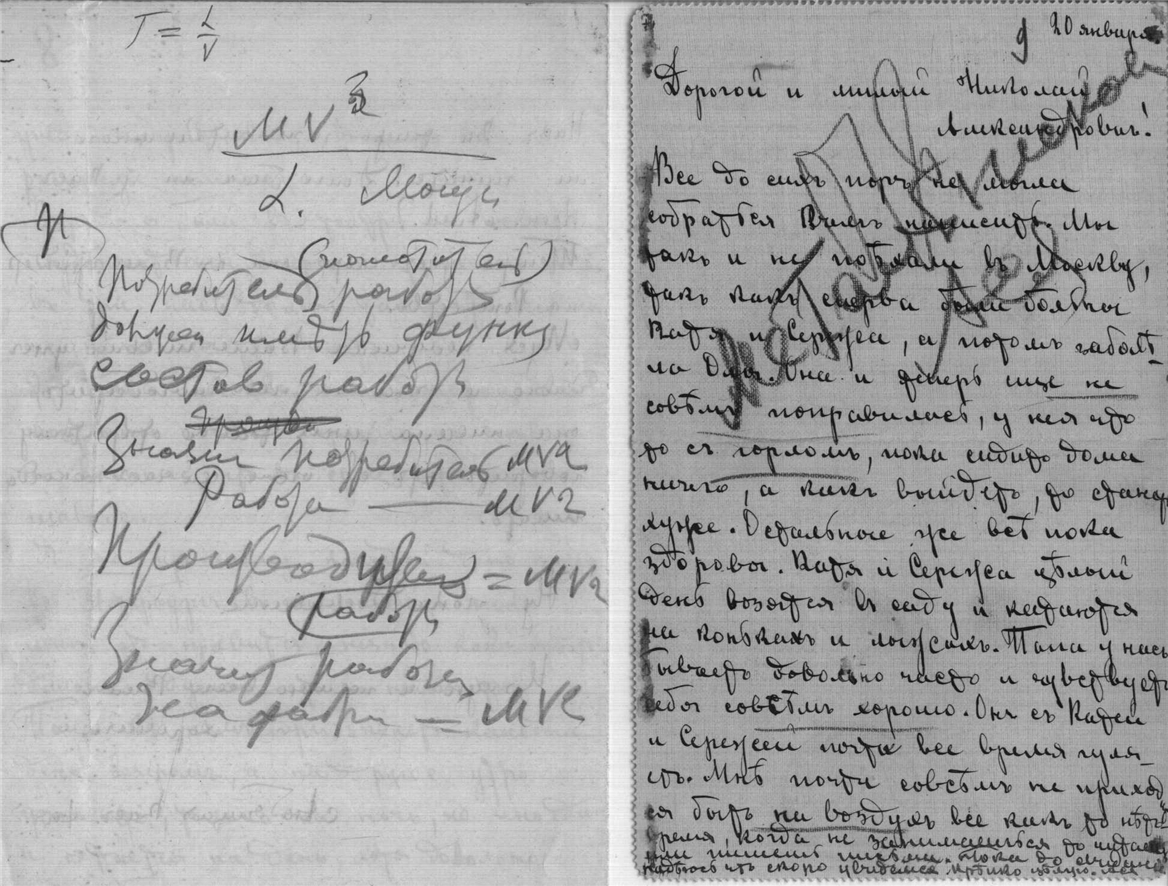 T = L/V
MV³
L. Мощ
(
Потребитель работы
должен имѣть функц
состав работы
Значит потребитель MV2
Работа — MV2
Производитель = MV2
работы
Значит работа
= MV2
9 20 января
Дорогой и милый Николай
Александрович!
Все до сихъ поръ не могла
собраться Вамъ написать. Мы
такъ и не поѣхали въ Москву,
такъ какъ сперва были больны
Катя и Сережа, а потомъ заболѣ-
ла Оля. Она и теперь еще не
совсѣмъ поправилась, у нея что
то съ горломъ, пока сидитъ дома
ничего, а какъ выйдетъ, то станетъ
хуже. Остальные же всѣ пока
здоровы. Катя и Сережа цѣлый
день возятся въ саду и катаются
на конькахъ и лыжахъ. Папа у насъ
бываетъ довольно часто и чувствуетъ
себя совсѣмъ хорошо. Онъ съ Катей
и Сережей почти все время гуля-
етъ. Мнѣ почти совсѣмъ не приход
ся быть на воздухѣ все какъ то нѣтъ
время, когда не занимаешься то читаешь
или пишешь письма. Пока до свиданія
надѣюсь что скоро увидимся.